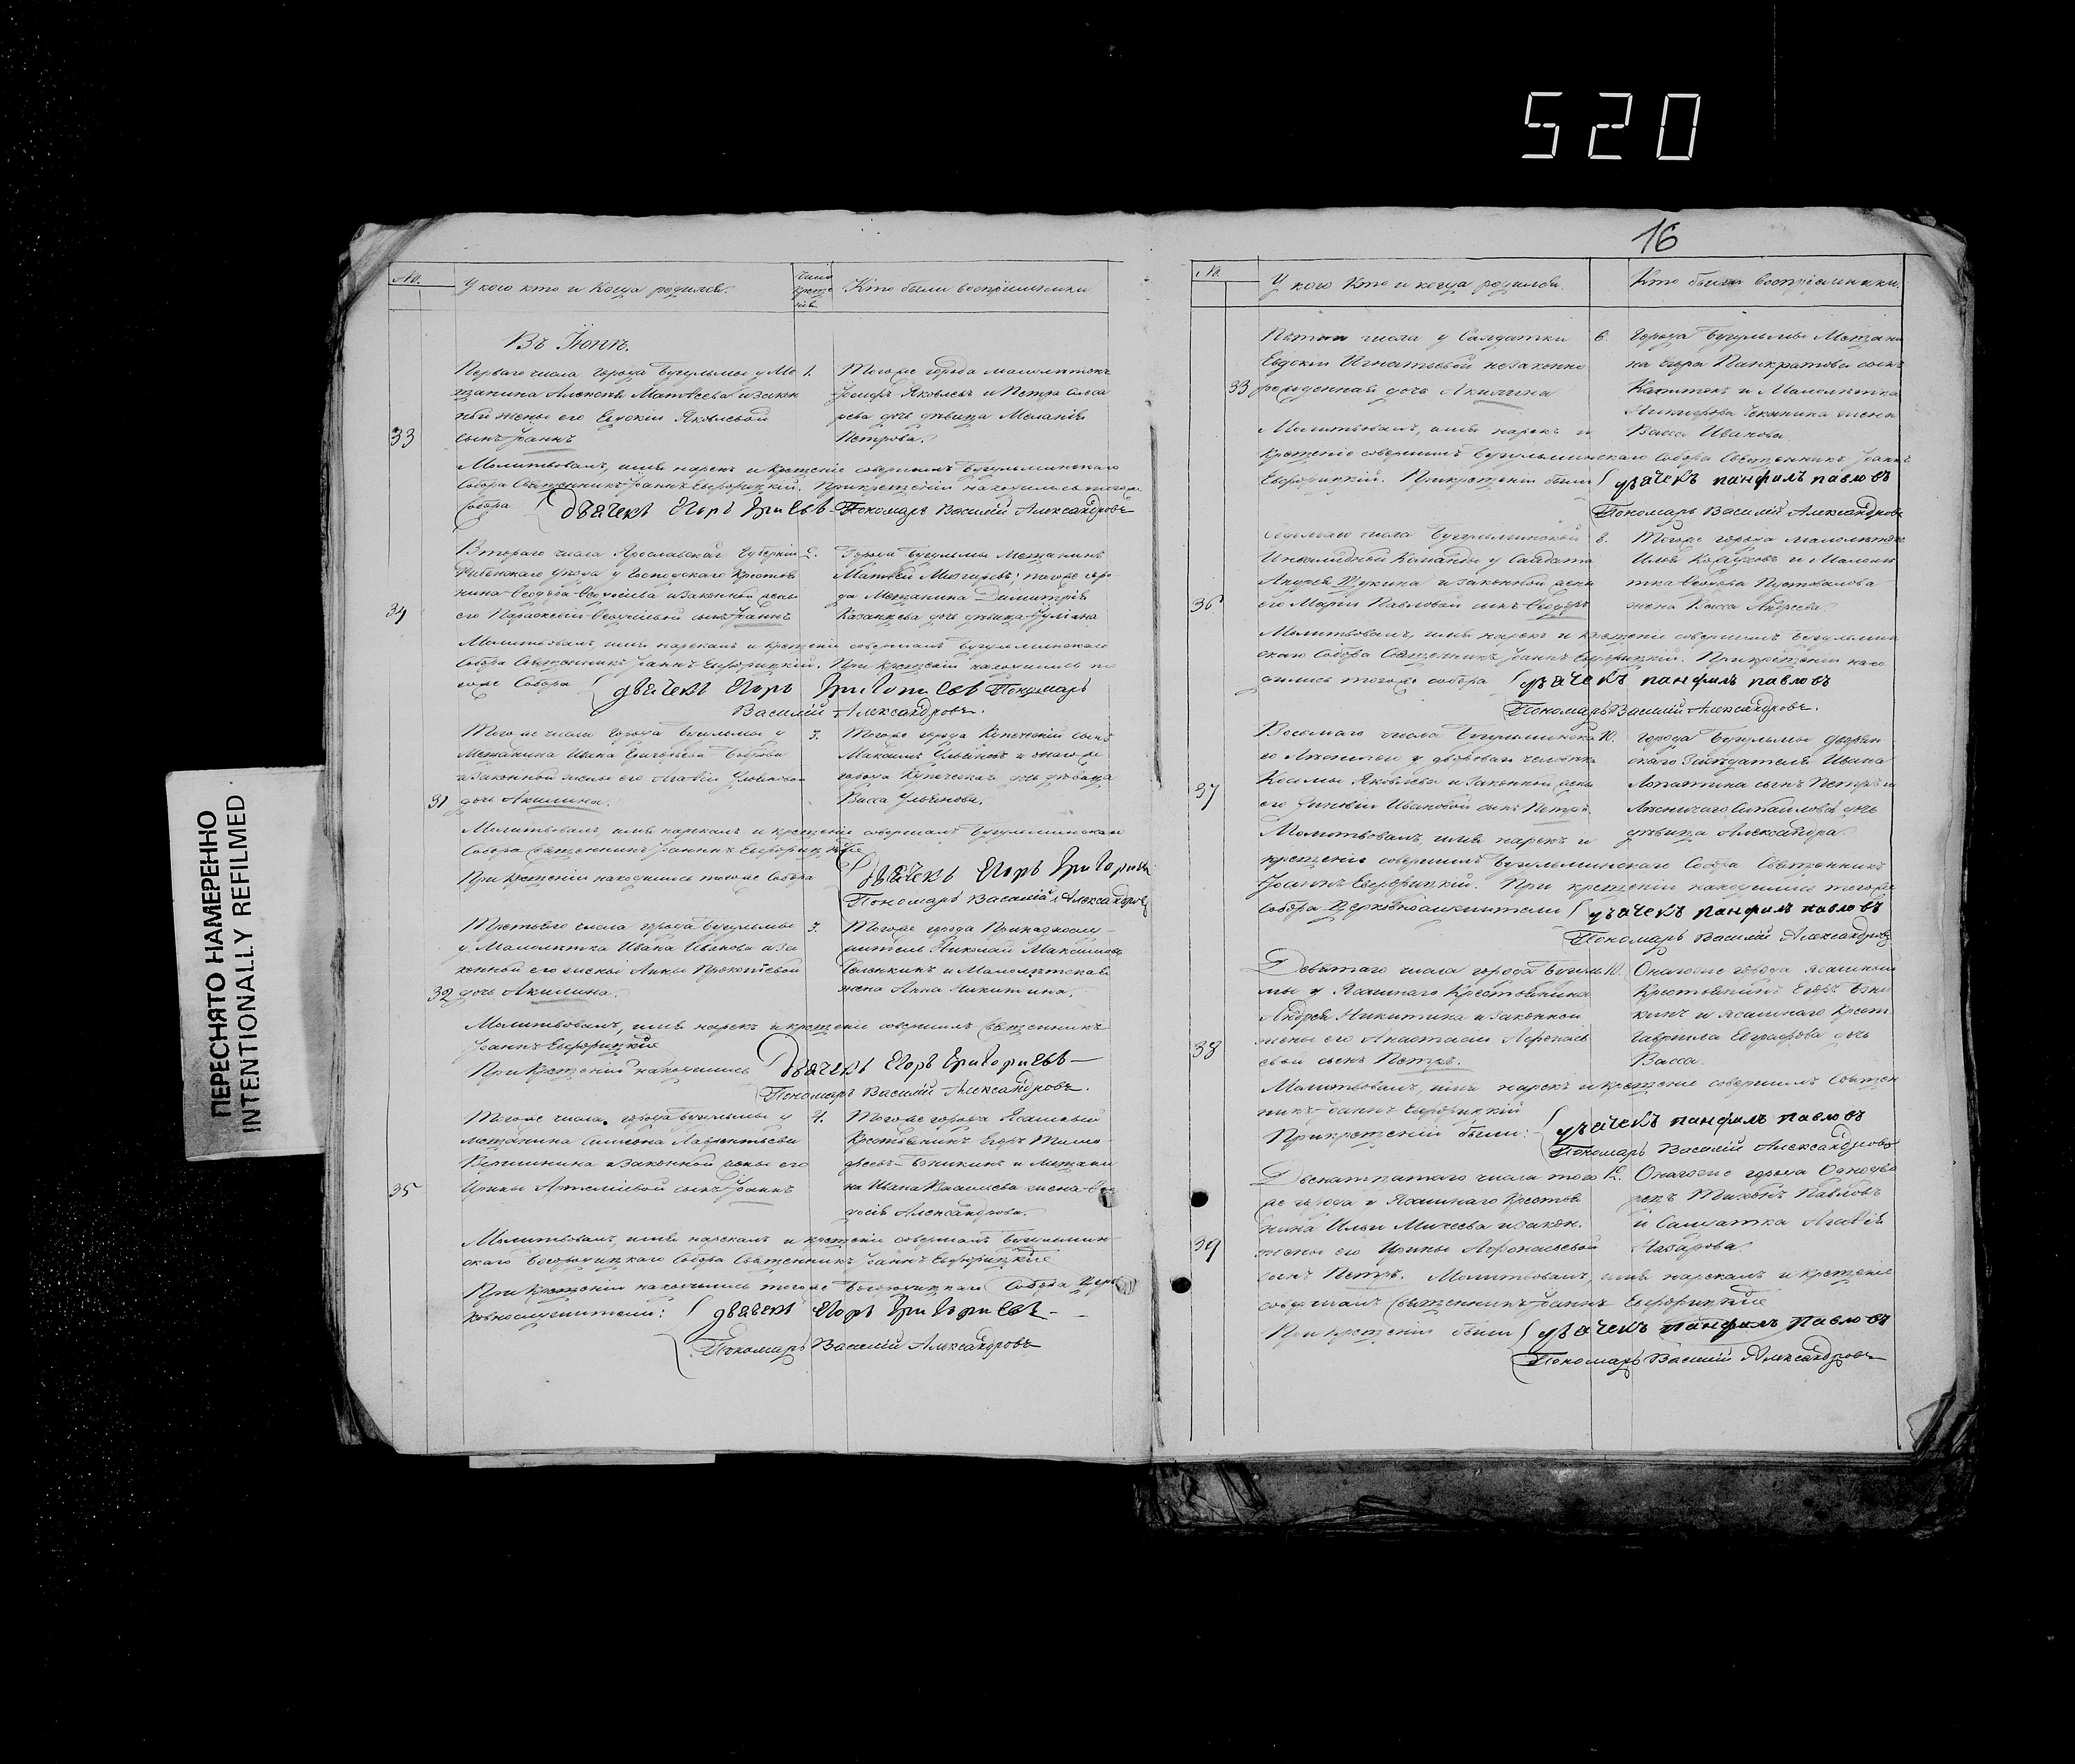 520
16
ПЕРЕСНЯТО НАМЕРЕННО
INTENTIONALLY REFILMED
№.
У кого кто и когда родился.
число креще нія.
Кто были воспріимники
Въ Іюнѣ.
33
Перваго числа города Бугульмы у Ме
щанина Алексѣя Матвѣева и закон
ной жены его Евдокіи Яковлевой
сынъ Іоаннъ
1.
Тогоже города малолѣтокъ
Яковлевъ и Петра
дочь дѣвица Меланія
Петрова.
Молитвовалъ, имя нарекъ и крещеніе совершилъ Бугульминскаго
Собора Священникъ Іоаннъ Евфорицкій. При крещеніи находились тогоже
Собора дьячекъ Егоръ Пономарь Василій Александровъ
34
Втораго числа Ярославской Губерніи
уѣзда у Господскаго крестья
нина Ѳеодора и законной жены
его Параскевіи сынъ Іоаннъ
2.
Города Бугульмы Мещанинъ
Матвей тогоже горо
да Мещанина Димитрія
Казанцева дочь дѣвица Іуліана
Молитвовалъ, имя нарекалъ и крещеніе совершалъ Бугульминскаго
Собора Священникъ Іоаннъ Евфорицкій. При крещеніи находились то
гоже Собора дьячекъ Егоръ Григорьевъ Пономарь
Василій Александровъ.
31
Тогоже числа города Бугульмы у
Мещанина Ивана
и законной жены его
дочь Акилина.
3.
Тогоже города Купеческій сынъ
Максимъ и онагоже
города Купеческая дочь дѣвица
Васса Ульянова.
Молитвовалъ имя нарекалъ и крещеніе совершалъ Бугульминскаго
Собора священникъ Іоаннъ Евфорицкіе
При крещеніи находились тогоже Собора
дьячекъ Егоръ Григорьевъ
Пономарь Василій Александровъ
32
Третьяго числа города Бугульмы
у Малолѣтка Ивана Иванова и за
конной его жены Анны Прокопіевой
дочь Акилина.
3.
Тогоже города Приказнослу
житель Николай Максимовъ
и Малолѣткова
жена Анна Никитина.
Молитвовалъ, имя нарекъ и крещеніе совершилъ священникъ
Іоаннъ Евфорицкіе
При крещеніи находились дьячекъ Егоръ Григорьевъ
Пономарь Василій Александровъ.
35
Тогоже числа города Бугульмы у
мещанина Симеона Лаврентьева
Вершинина и законной жены его
Ирины Артеміевой сынъ Іоаннъ
4.
Тогоже города Ясашный
Крестьянинъ Егоръ Тимо
феевъ и Мещани
на Ивана Васильева жена
Александрова.
Молитвовалъ, имя нарекалъ и крещеніе совершалъ Бугульмин
скаго Богородицкаго Собора Священникъ Іоаннъ Евфорицкіе
При крещеніи находились тогоже Богородицкаго Собора Цер
ковнослужители: дьячекъ Егоръ Григорьевъ
Пономарь Василій Александровъ
№
У кого кто и когда родился.
Кто были воспріимники.
33
Пятаго числа у Салдатки
Евдокіи Игнатьевой незаконно
рожденная дочь Акилина
6.
Города Бугульмы Мещани
на Егора Панкратова сынъ
и Малолѣтка
Никифора жена
Васса Иванова
Молитвовалъ, имя нарекъ и
крещеніе совершилъ Бугульминскаго Собора Священникъ Іоаннъ
Евфорицкій. При крещеніи были дьячекъ панфилъ павловъ
Пономарь Василій Александровъ
36
Седьмаго числа Бугульминской
Инвалидной Команды у Салдата
Андрея Щукина и законной жены
его Маріи Павловой сынъ Ѳеодоръ
8.
Тогоже города малолѣтокъ
Илья и Малолѣ
тка Ѳеодора
жена Васса Андреева.
Молитвовалъ, имя нарекъ и крещеніе совершилъ Бугульмин
скаго Собора Священникъ Іоаннъ Евфорицкій. При крещеніи нахо
дились тогоже собора дьячекъ панфилъ павловъ
Пономарь Василій Александровъ.
37
Восьмаго числа Бугульминска
го у дворового человѣка
Козьмы Яковлева и законной жены
его Зиновіи Ивановой сынъ Петръ.
10.
Города Бугульмы дворян
скаго Засѣдателя Ивана
Лопатина сынъ Петръ и
дочь
дѣвица Александра.
Молитвовалъ, имя нарекъ и
крещеніе совершилъ Бугульминскаго Собора Священникъ
Іоаннъ Евфорицкій. При крещеніи находились тогоже
собора Церковнослужители дьячекъ панфилъ павловъ
Пономарь Василій Александровъ
38
Девятаго числа города Бугуль
мы у Ясашнаго Крестьянина
Андрея Никитина и законной
жены его Анастасіи Афонась
евой сынъ Петръ.
10.
Онагоже города ясашный
Крестьянинъ Егоръ
и ясашнаго Крест.
Гавріила Евграфова дочь
Васса.
Молитвовалъ, имя нарекъ и крещеніе совершилъ Священ
никъ Іоаннъ Евфорицкій
При крещеніи были: дьячекъ панфилъ павловъ
Пономарь Василій Александровъ
39
Двенатцатаго числа того
же города у Ясашнаго Крестья
нина Ильи Михеева и закон.
жены его Ирины Афонасьевой
сынъ Петръ. Молитвовалъ, имя нарекалъ и крещеніе
12.
Онагоже города Однодво
рецъ Тихонъ Павловъ
и Салдатка Агафія
Назарова.
совершалъ Священникъ Іоаннъ Евфорицкіе
При крещеніи были дьячекъ панфилъ павловъ
Пономарь Василій Александровъ